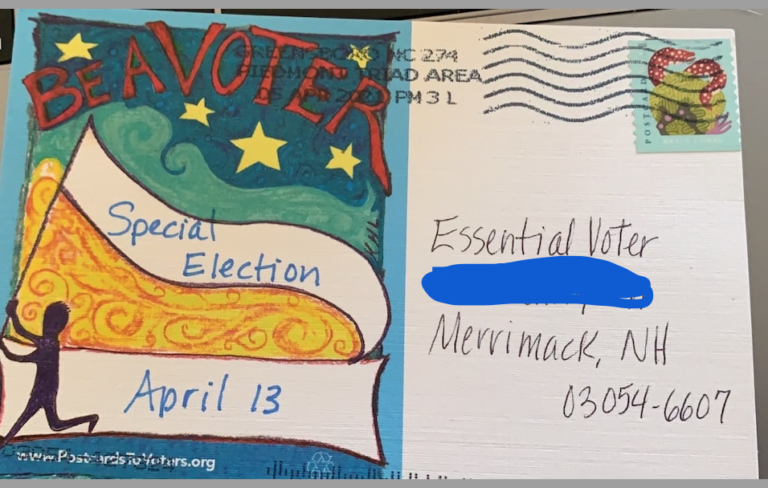 BE A VOTER
Special
Election
April 13
www.PostcardsToVoters.org
GREENSBORO NC 274
PIEDMONT TRIAD AREA
05 APR 2021 PM 3 L
POSTCARD
Essential Voter
Merrimack, NH
03054-6607